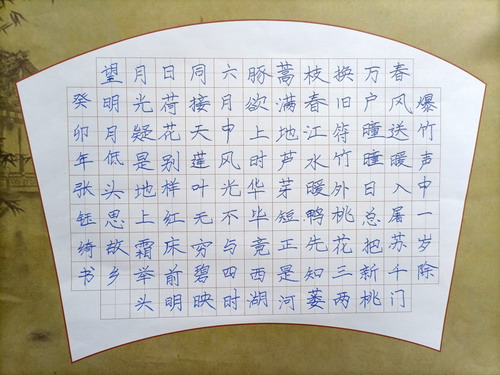 爆竹声中一岁除
春风送暖入屠苏千门
万户曈曈日总把新桃
换旧符竹外桃花三两
枝春江水暖鸭先知蒌
蒿满地芦芽短正是河
豚欲上时华毕竟西湖
六月中风光不与四时
同接天莲叶无穷碧映
日荷花别样红床前明
月光疑是地上霜举头
望明月低头思故乡
癸卯年张钰绮书